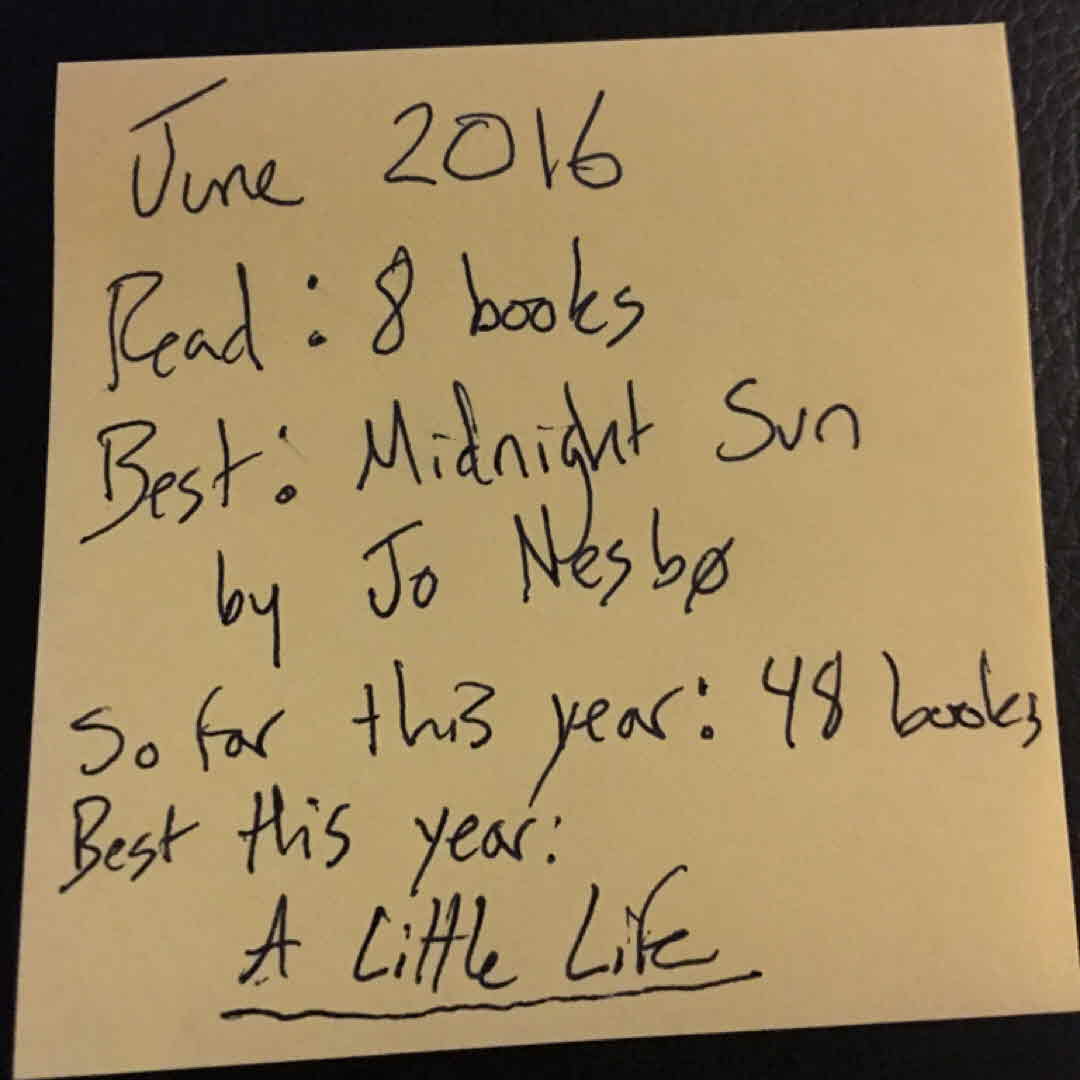 June 2016
Read: 8 books
Best: Midnight Sun
by Jo Nesbø
So far this year: 48 books
Best this year:
A Little Life